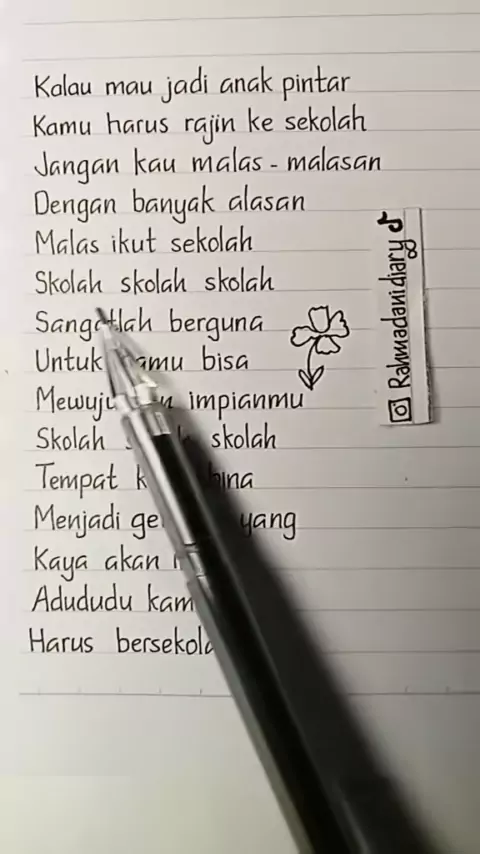 Kalau mau jadi anak pintar
Kamu harus rajin ke sekolah
Jangan kau malas - malasan
Dengan banyak alasan
Malas ikut sekolah
Skolah skolah skolah
Sangatlah berguna
Untuk bisa
impianmu
Skolah skolah
Tempat
Menjadi yang
Kaya akan
Adududu
Harus
Rahmadanidiary